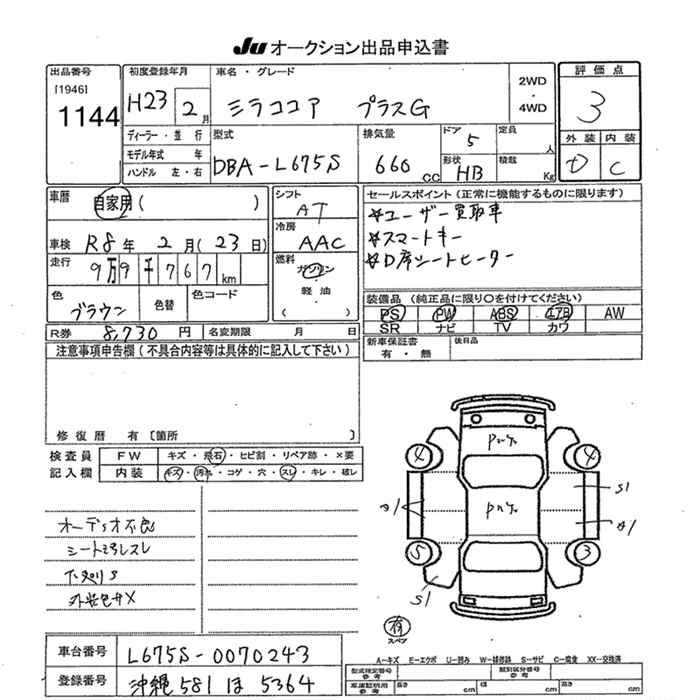 Ju オークション出品申込書
出品番号
[1946]
1144
初度登録年月
H23 2 月
車名・グレード
ミラココア プラスG
2WD
・
4WD
評価点
3
ディーラー・並行
モデル年式 年
ハンドル 左・右
型式
DBA-L675S
排気量
660 cc
ドア 5
定員 人
形状 HB
積載 Kg
外装 内装
D C
車歴
自家用( )
車検 R8年 2月(23日)
走行 9万9千767km
色
ブラウン
色替
色コード
シフト
AT
冷房
AAC
燃料
ガソリン
軽油
( )
セールスポイント(正常に機能するものに限ります)
☆ユーザー買取車
☆スマートキー
☆D席シートヒーター
装備品(純正品に限り○を付けてください)
PS PW ABS エアB AW
SR ナビ TV カワ
R券 8,730 円
名変期限 月 日
新車保証書
有・無
後日品
注意事項申告欄(不具合内容等は具体的に記入して下さい)
修復歴 有〔箇所 〕
検査員
記入欄
FW キズ・飛石・ヒビ割・リペア跡・×要
内装 キズ・汚れ・コゲ・穴・スレ・キレ・破レ
オーディオ不良
シート汚レスレ
下廻りS
4 4
S1
A1 A1
5 3
S1
有
スペア
車台番号 L675S-0070243
登録番号 沖縄 581 ほ 5364
A-キズ E-エクボ U-凹み W-補修跡 S-サビ C-腐食 XX-交換済
型式指定番号
参考
類別区分番号
参考
車庫証明用
参考
長さ cm 幅 cm 高さ cm